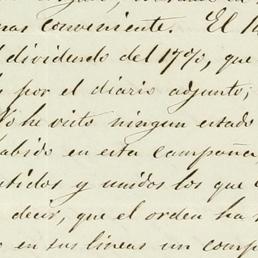 mas conveniente. El
dividendo del 17%, que
por el diario adjunto;
No he visto ningun estado
sabido en esta campaña
tidos y unidos los que
decir, que el orden ha
en sus lineas un comp